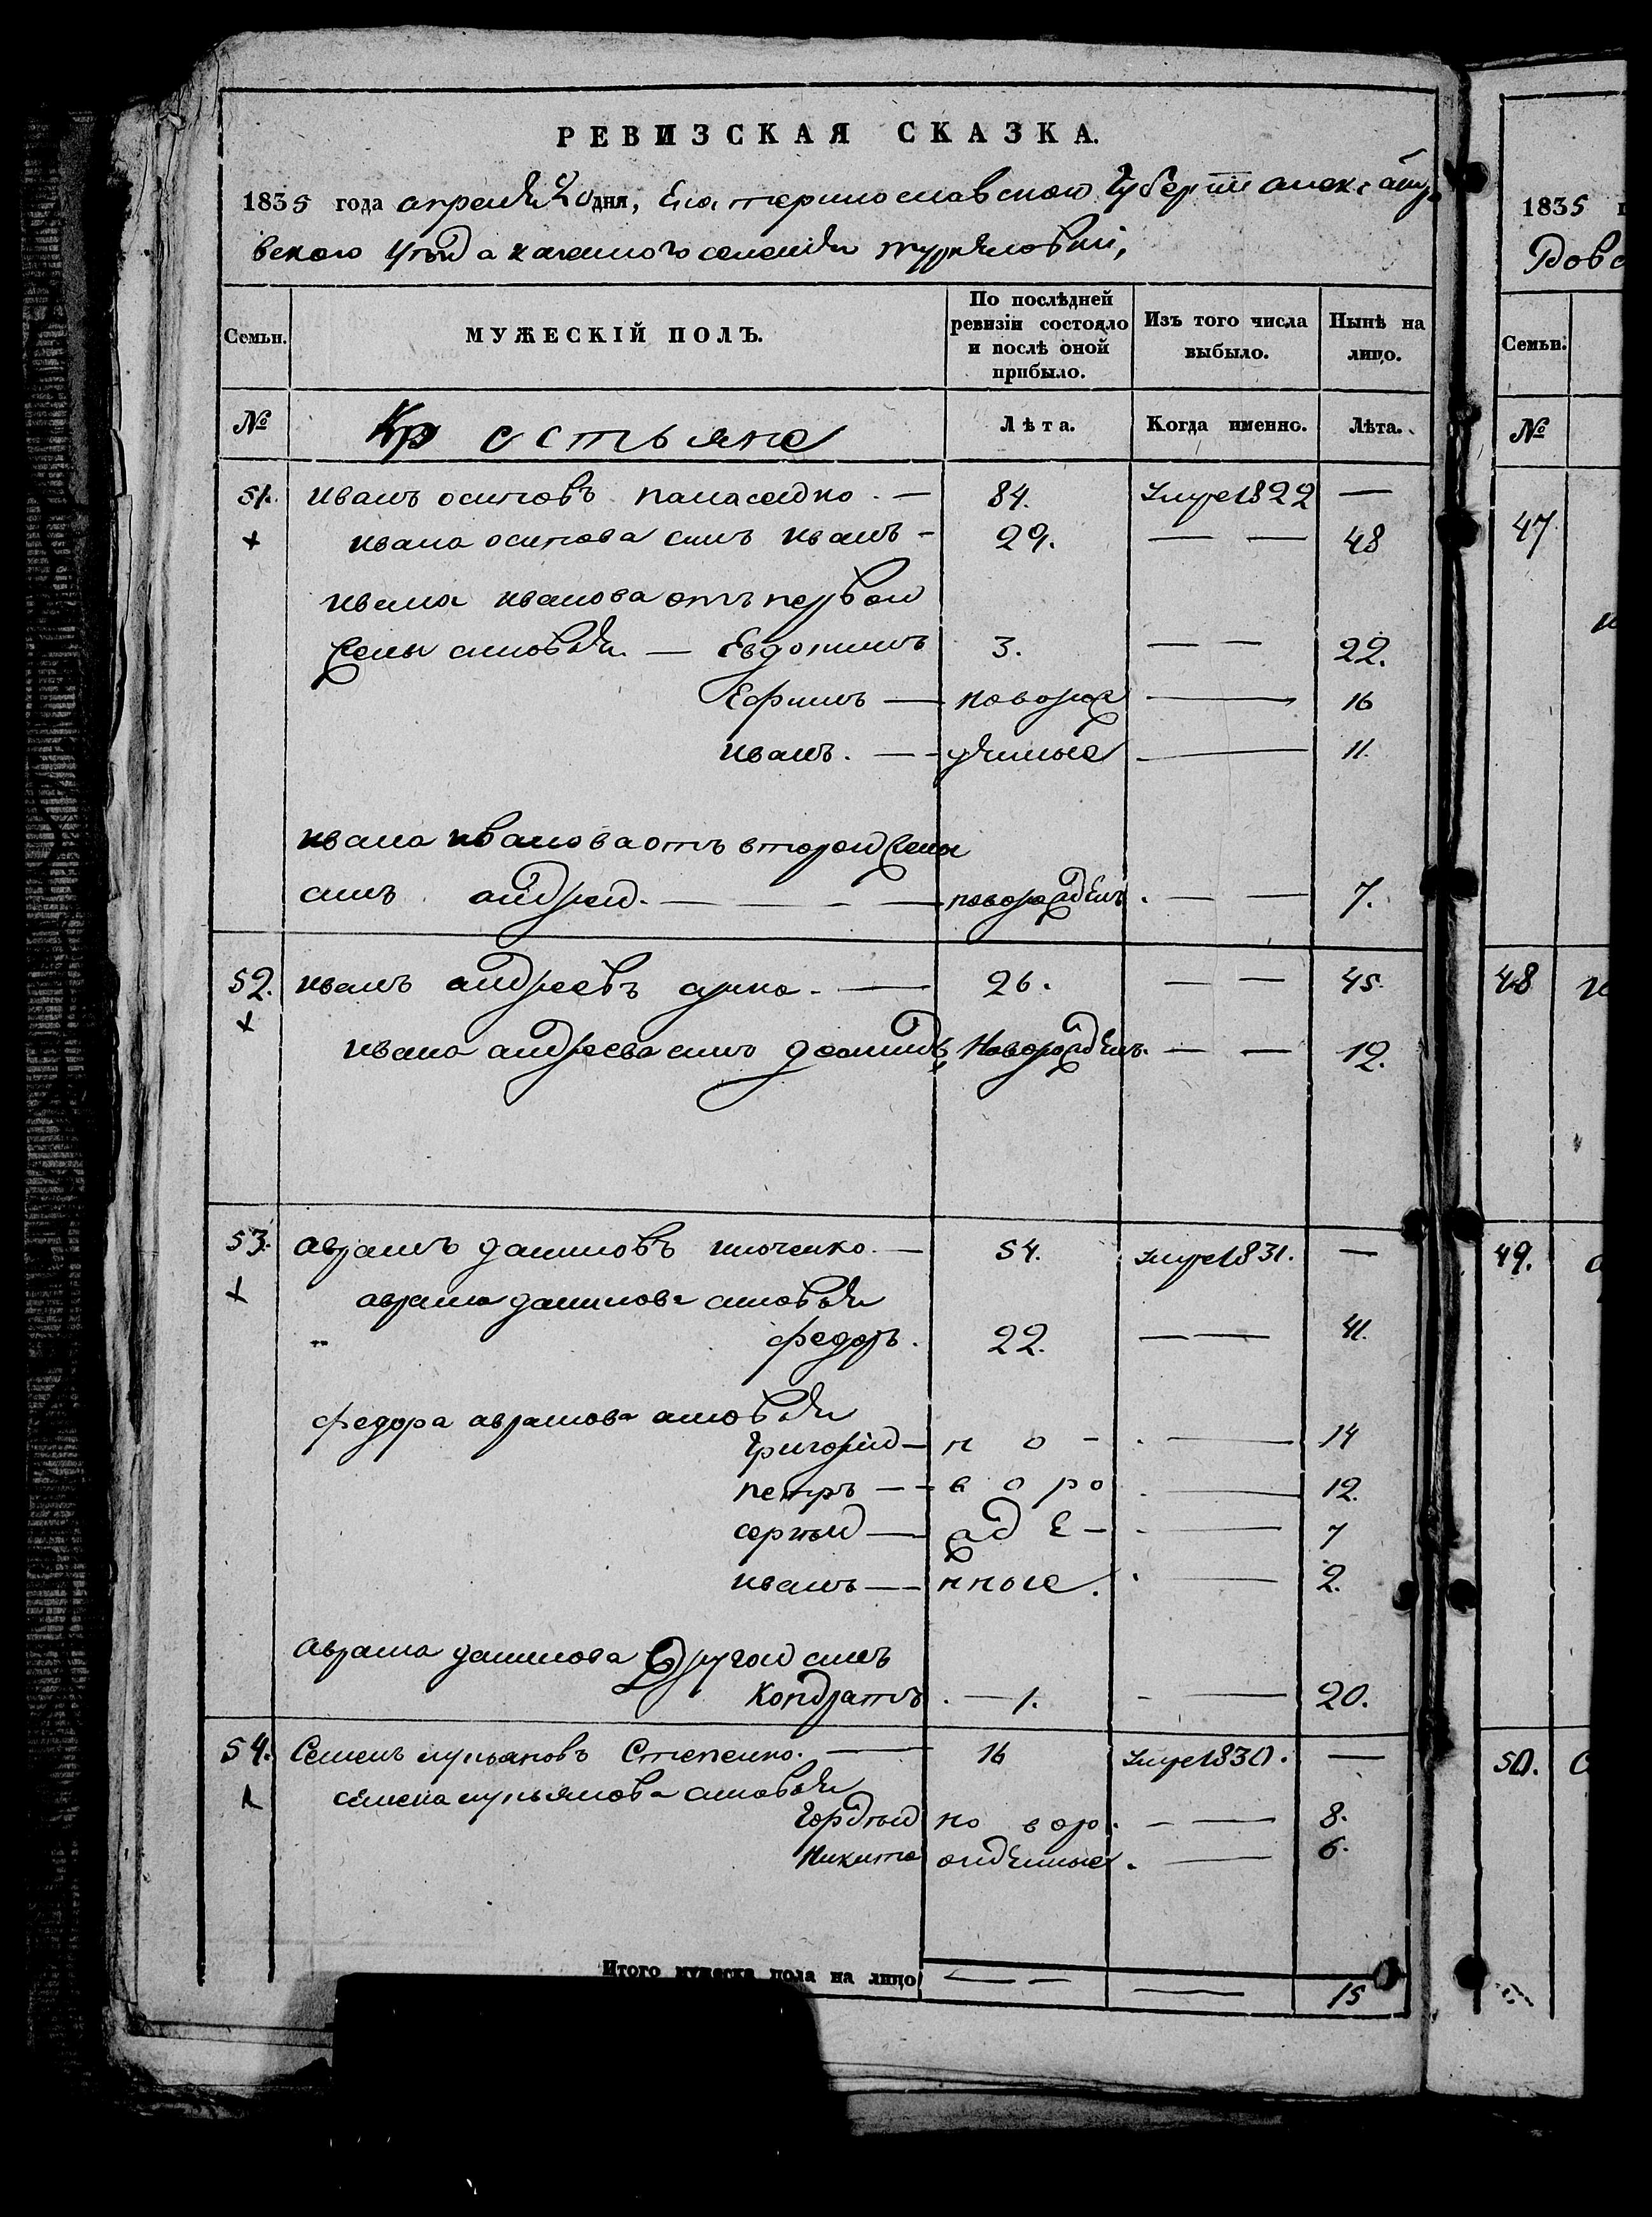 РЕВИЗСКАЯ СКАЗКА.
1835 года апреля 20 дня, Екатеринославской Губернии Александ
ровского уезда казенного селения
Семьи. МУЖЕСКІЙ ПОЛЪ. По послѣдней ревизіи состояло и послѣ оной прибыло. Изъ того числа выбыло. Нынѣ на лицо.
№ Крестьяне Лѣта. Когда именно. Лѣта.
51. иванъ осиповъ панасейко. — 84. умре 1822 —
х ивана осипова сынъ иванъ - 29. — — 48
ивана иванова отъ первой
жены сыновья — Евдокимъ 3. — — 22.
Ефимъ — новорож — 16
иванъ. — дѣнные — 11.
ивана иванова отъ второй жены
сынъ андрей. — — новорожденъ. — — 7.
52. иванъ андреевъ — 26. — — 45.
х ивана андреева сынъ новорожденъ. — — 12.
53. аврамъ даниловъ — 54. умре 1831. —
х аврама данилова сыновья
федоръ. 22. — — 41.
федора аврамова сыновья
Григорій — н о - — 14
петръ — в о р о — 12.
сергѣй — жд е - — 7
иванъ — нные. — 2.
аврама данилова другой сынъ
Кондратъ. — 1. - — 20.
54. Семенъ лукьяновъ Степенко. — 16 умре 1830. —
х семена лукьянова сыновья
Гордѣй но вор. - — 8.
Никита ожденные. — 6.
Итого мужеска пола на лицо — — — 15
1835
Семьи.
№
47
48
49.
50.